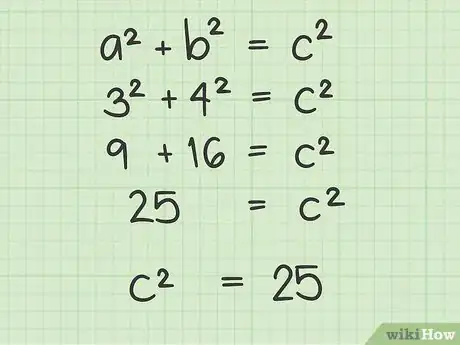 a² + b² = c²
3² + 4² = c²
9 + 16 = c²
25 = c²
c² = 25
wikiHow